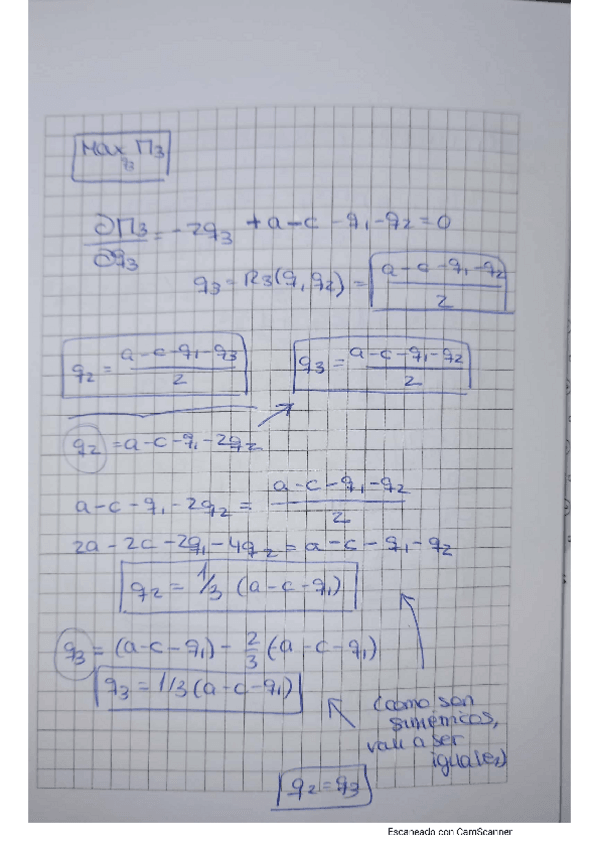 Max Π3
q3
∂Π3/∂q3 = -2q3 + a - c - q1 - q2 = 0
q3 = R3(q1, q2) = (a - c - q1 - q2)/2
q2 = (a - c - q1 - q3)/2    q3 = (a - c - q1 - q2)/2
q2 = a - c - q1 - 2q2
a - c - q1 - 2q2 = (a - c - q1 - q2)/2
2a - 2c - 2q1 - 4q2 = a - c - q1 - q2
q2 = 1/3 (a - c - q1)
q3 = (a - c - q1) - 2/3 (a - c - q1)
q3 = 1/3 (a - c - q1)
(como son
simétricos,
van a ser
iguales)
q2 = q3
Escaneado con CamScanner